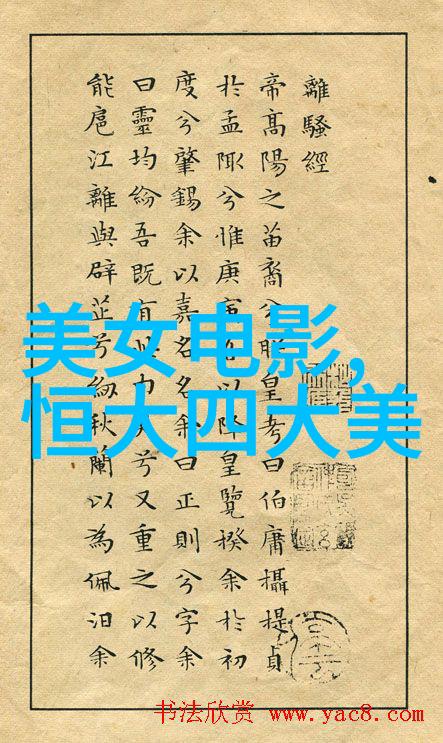 離騷經
帝高陽之苗裔兮朕皇考曰伯庸攝提貞
於孟陬兮惟庚寅吾以降皇覽揆余於初
度兮肇錫余以嘉名名余曰正則兮字余
曰靈均紛吾既有此內美兮又重之以修
能扈江離與辟芷兮紉秋蘭以為佩汩余
美女电影,
恒大四大美
书法欣赏 www.yac8.com